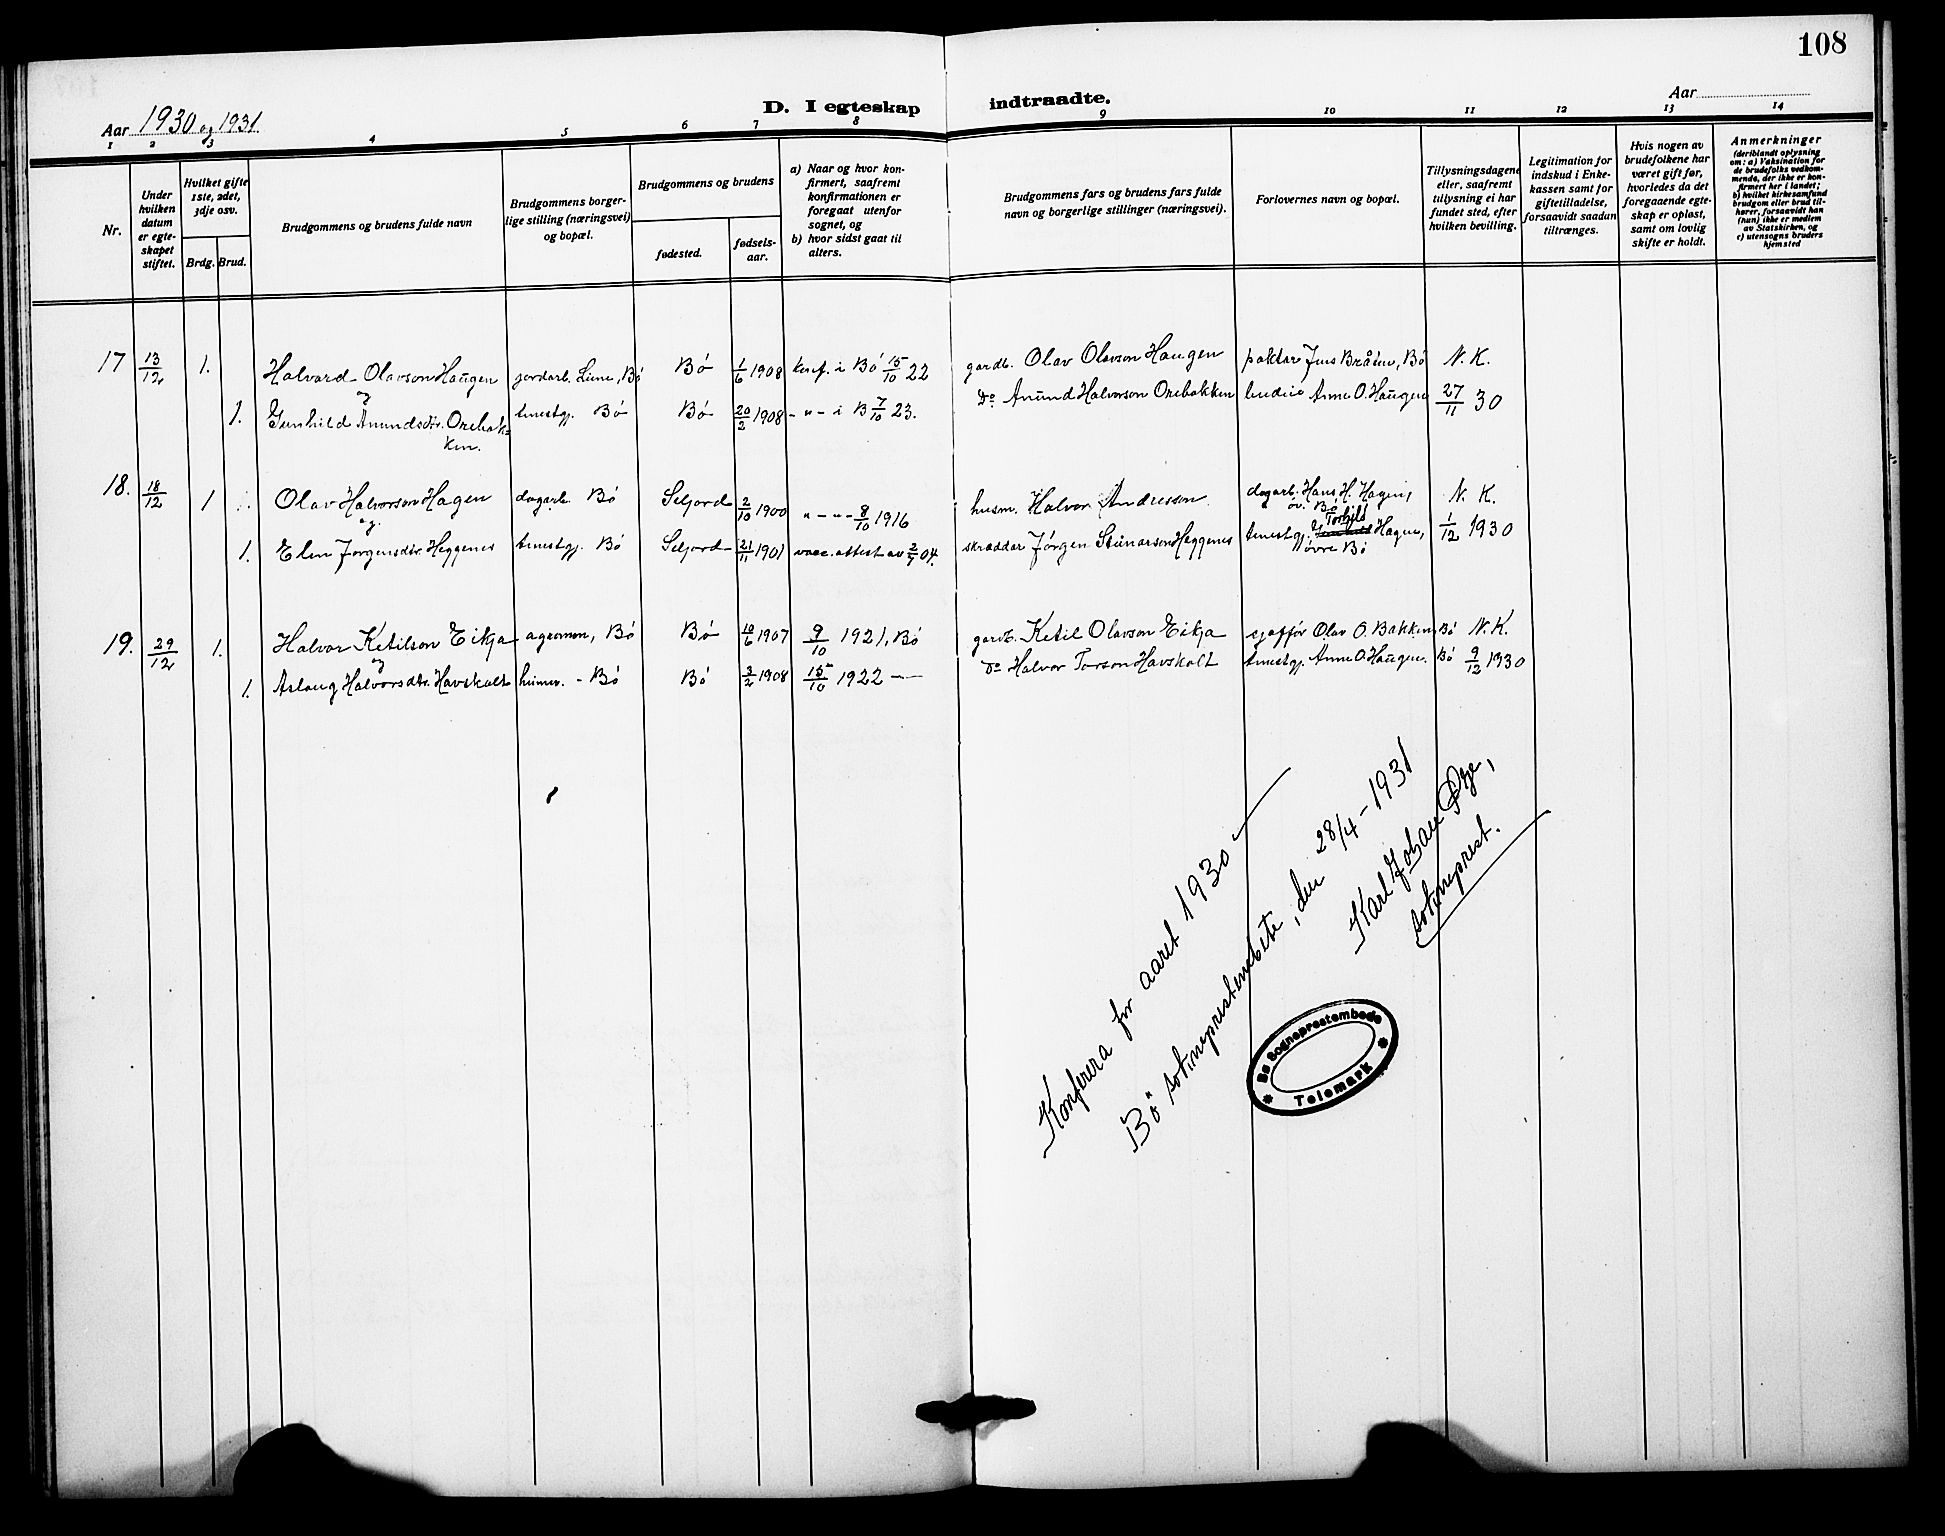 108
D. I egteskap indtraadte.
Aar 1930 og 1931.
Aar
1 2 3 4 5 6 7 8 9 10 11 12 13 14
Nr.
Under hvilken datum er egteskapet stiftet.
Hvilket gifte 1ste, 2det, 3dje osv.
Brdg. Brud.
Brudgommens og brudens fulde navn
Brudgommens borgerlige stilling (næringsvei) og bopæl.
Brudgommens og brudens
fødested.
fødselsaar.
a) Naar og hvor konfirmert, saafremt konfirmationen er foregaat utenfor sognet, og
b) hvor sidst gaat til alters.
Brudgommens fars og brudens fars fulde navn og borgerlige stillinger (næringsvei).
Forlovernes navn og bopæl.
Tillysningsdagene eller, saafremt tillysning ei har fundet sted, efter hvilken bevilling.
Legitimation for indskud i Enkekassen samt for giftetilladelse, forsaavidt saadan tiltrænges.
Hvis nogen av brudefolkene har været gift før, hvorledes da det foregaaende egteskap er opløst, samt om lovlig skifte er holdt.
Anmerkninger
(deriblandt oplysning om: a) Vaksination for de brudefolks vedkommende, der ikke er konfirmert her i landet; b) hvilket kirkesamfund brudgom eller brud tilhører, forsaavidt han (hun) ikke er medlem av Statskirken, og c) utensogns bruders hjemsted
17 13/12 1. Halvard Olavson Haugen jordarb. Lime, Bø Bø 1/6 1908 konf. i Bø 15/10 22 gardb. Olav Olavson Haugen paktar Jens Bråten, Bø N. K.
og
1. Gunhild Anundsdtr. Orebakken. tenestgj. Bø Bø 20/2 1908 - " - i B 7/10 23. Do Anund Halvorson Orebakken budeie Anne O. Haugen 27/11 30
18. 18/12 1 Olav Halvorson Hagen dagarb. Bø Seljord 2/10 1900 " - " - 8/10 1916 husm. Halvor Andresson dagarb. Hans H. Hagen, øv. Bø N. K.
og
1. Elen Jørgensdtr. Heggenes tenestgj. Bø Seljord 21/11 1901 vacc. attest av 2/7 04. skræddar Jørgen Steinarson Heggenes tenestgj. Torhild Hagen, øvre Bø 1/12 1930
19. 29/12 1. Halvor Ketilson Eikja agronom, Bø Bø 10/6 1907 9/10 1921, Bø gardb. Ketil Olavson Eikja sjaffør Olav O. Bakken Bø N. K.
og
1. Aslaug Halvorsdtr. Havskolt heimev. - Bø Bø 3/2 1908 15/10 1922 — Do Halvor Torson Havskolt tenestgj. Anne O. Haugen. Bø 9/12 1930
Konferera for aaret 1930
Bø sokneprestembete, den 28/4 - 1931
Karl Johan Øye,
sokneprest.
Bø Sogneprestembede
* Telemark *